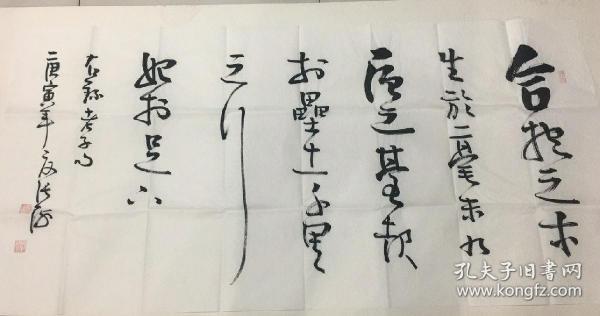 合抱之木
生於毫末九
层之基起
於壘土千里
之行
始於足下
右錄老子句
庚寅年夏
孔夫子旧书网
www.kongfz.com